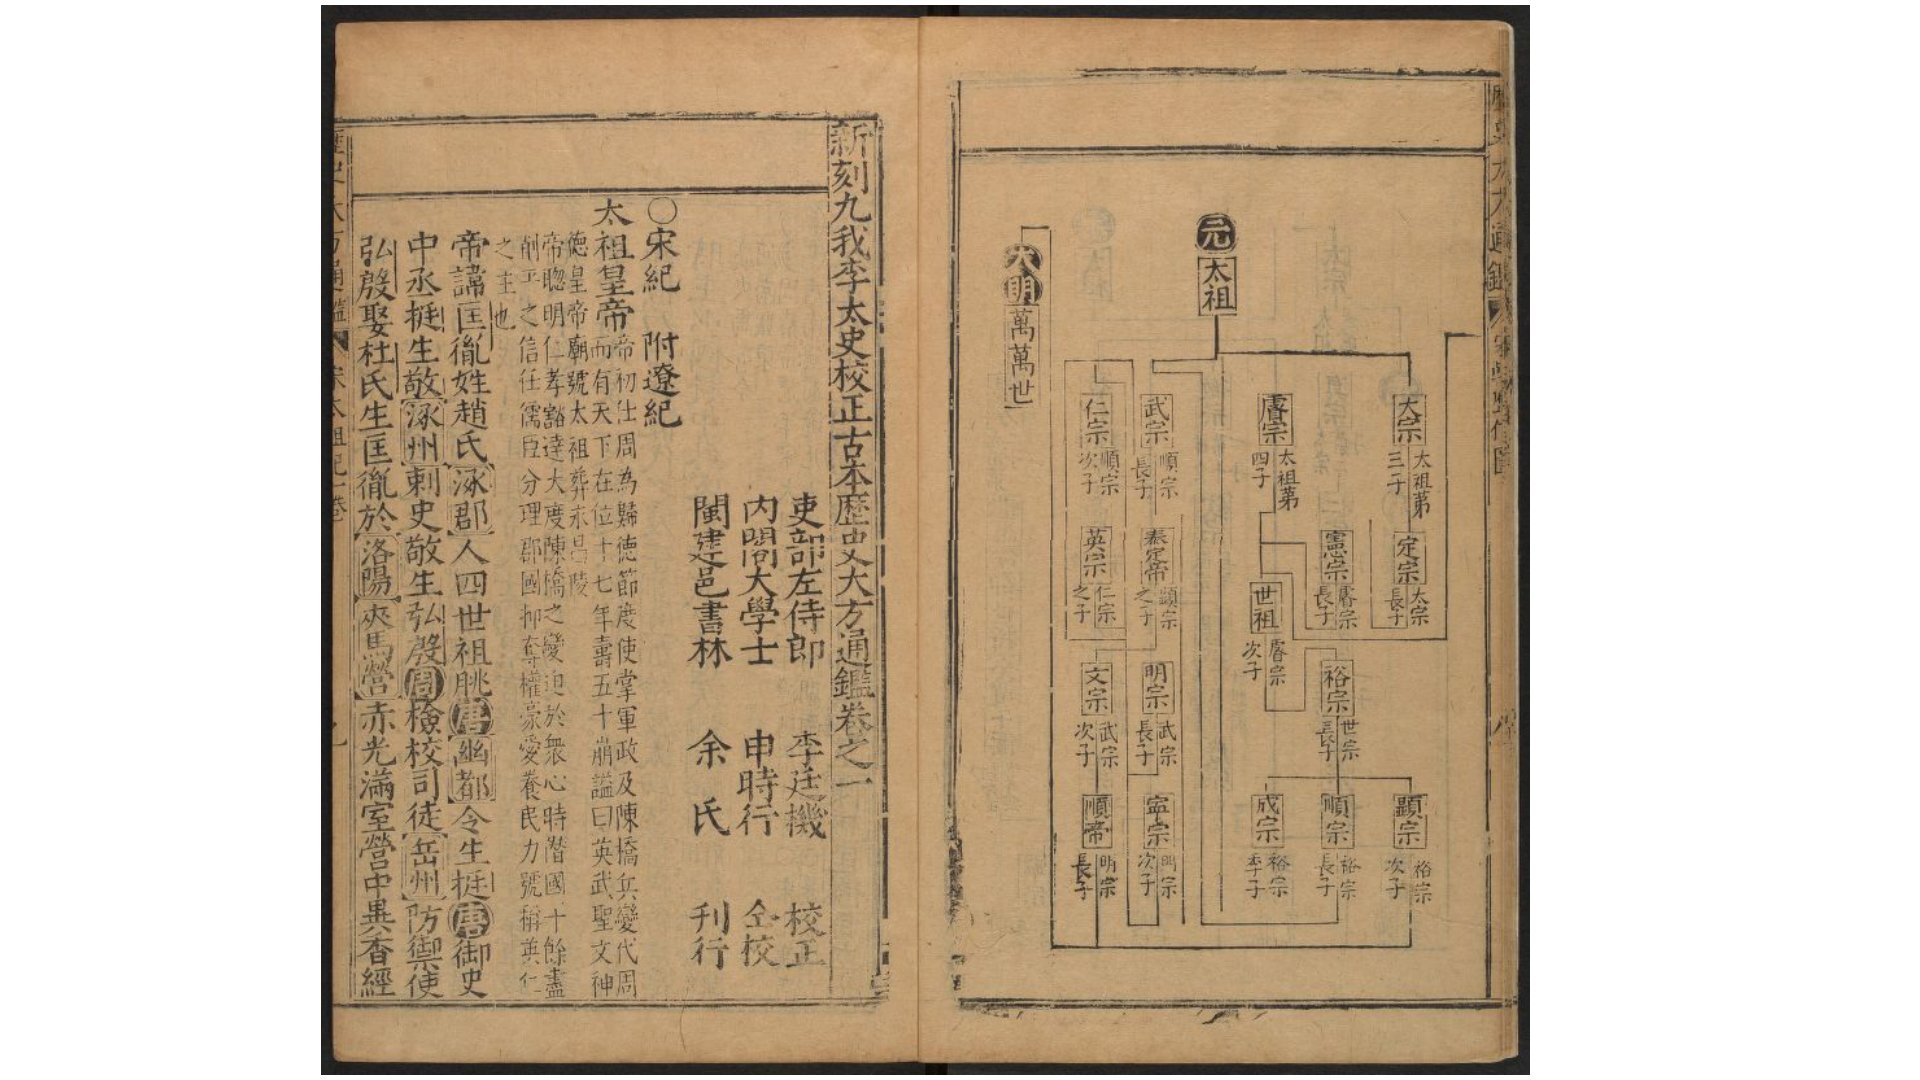 元
太祖
太宗
太祖第
三子
定宗
太宗
長子
睿宗
太祖第
四子
憲宗
睿宗
長子
世祖
睿宗
次子
裕宗
世宗
長子
顯宗
裕宗
次子
順宗
裕宗
長子
成宗
裕宗
季子
武宗
順宗
長子
仁宗
順宗
次子
泰定帝
顯宗
之子
英宗
仁宗
之子
明宗
武宗
長子
文宗
武宗
次子
寧宗
明宗
次子
順帝
明宗
長子
大明
萬萬世
新刻九我李太史校正古本歷史大方通鑑卷之一
吏部左侍郎 李廷機 校正
內閣大學士 申時行 仝校
閩建邑書林 余氏 刋行
○宋紀 附遼紀
太祖皇帝
帝初仕周為歸德節度使掌軍政及陳橋兵變代周
而有天下在位十七年壽五十崩謚曰英武聖文神
德皇帝廟號太祖葬永昌陵
帝聰明仁孝豁達大度陳橋之變迫於衆心時僣國十餘盡
削平之信任儒臣分理郡國抑奪權豪愛養民力號稱英仁
之主也
帝諱匡胤姓趙氏涿郡人四世祖朓唐幽都令生挺唐御史
中丞挺生敬涿州刺史敬生弘殷周檢校司徒岳州防禦使
弘殷娶杜氏生匡胤於洛陽夾馬營赤光滿室營中異香經